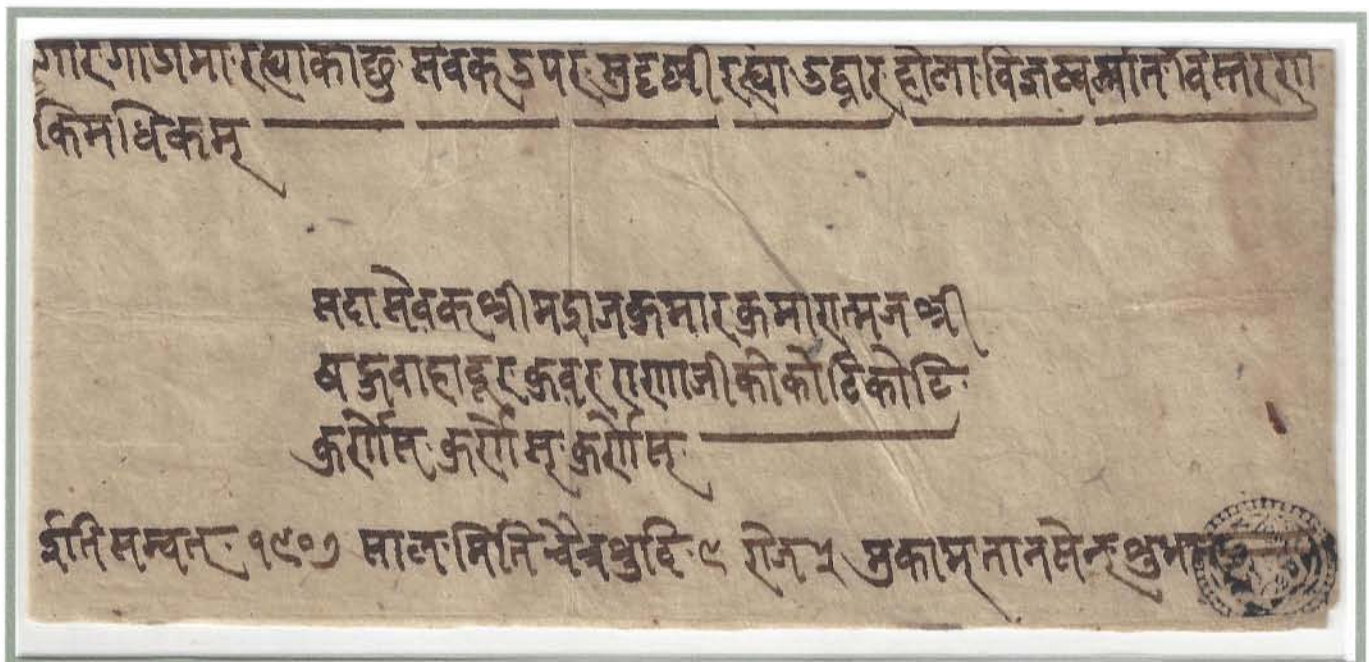 गारगाउमा रह्याकोछु सेवक उपर सुदृष्टी रह्या उद्वार होला विज्ञष्व विस्तरेरण
किमधिकम्
सदा सेवक श्रीमद्राजकुमार कुमारात्मज श्री
षड्गवाहादूर कुवर राणाजीको कोटि कोटि
कुर्णेस् कुर्णेस् कुर्णेस्
ईति सम्वत् १९०७ साल मिति चैत्र शुदि ९ रोज ५ मुकाम् तानसेन् शुभम्